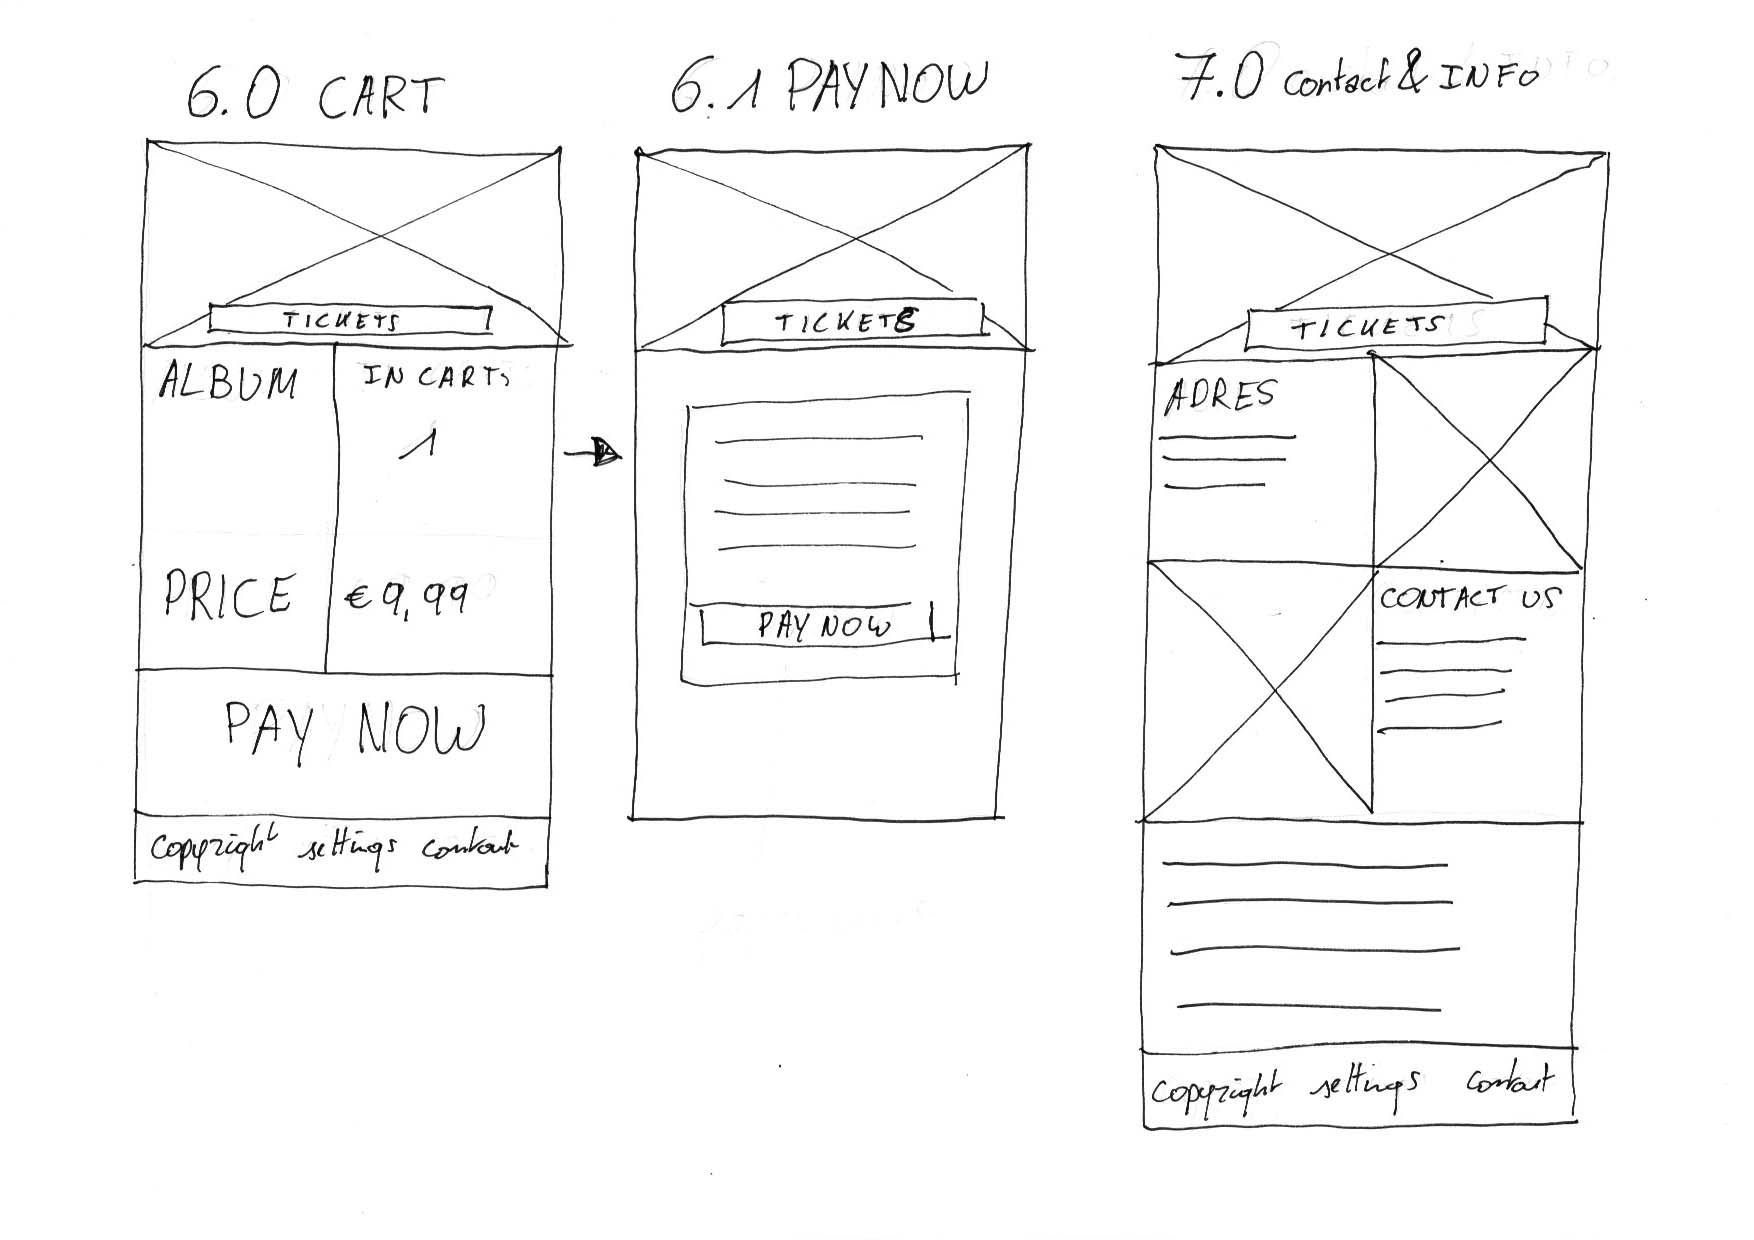 6.0 CART
TICKETS
ALBUM
IN CART
1
PRICE
€9,99
PAY NOW
copyright settings contact
6.1 PAY NOW
TICKETS
PAY NOW
7.0 contact & INFO
TICKETS
ADRES
CONTACT US
copyright settings contact